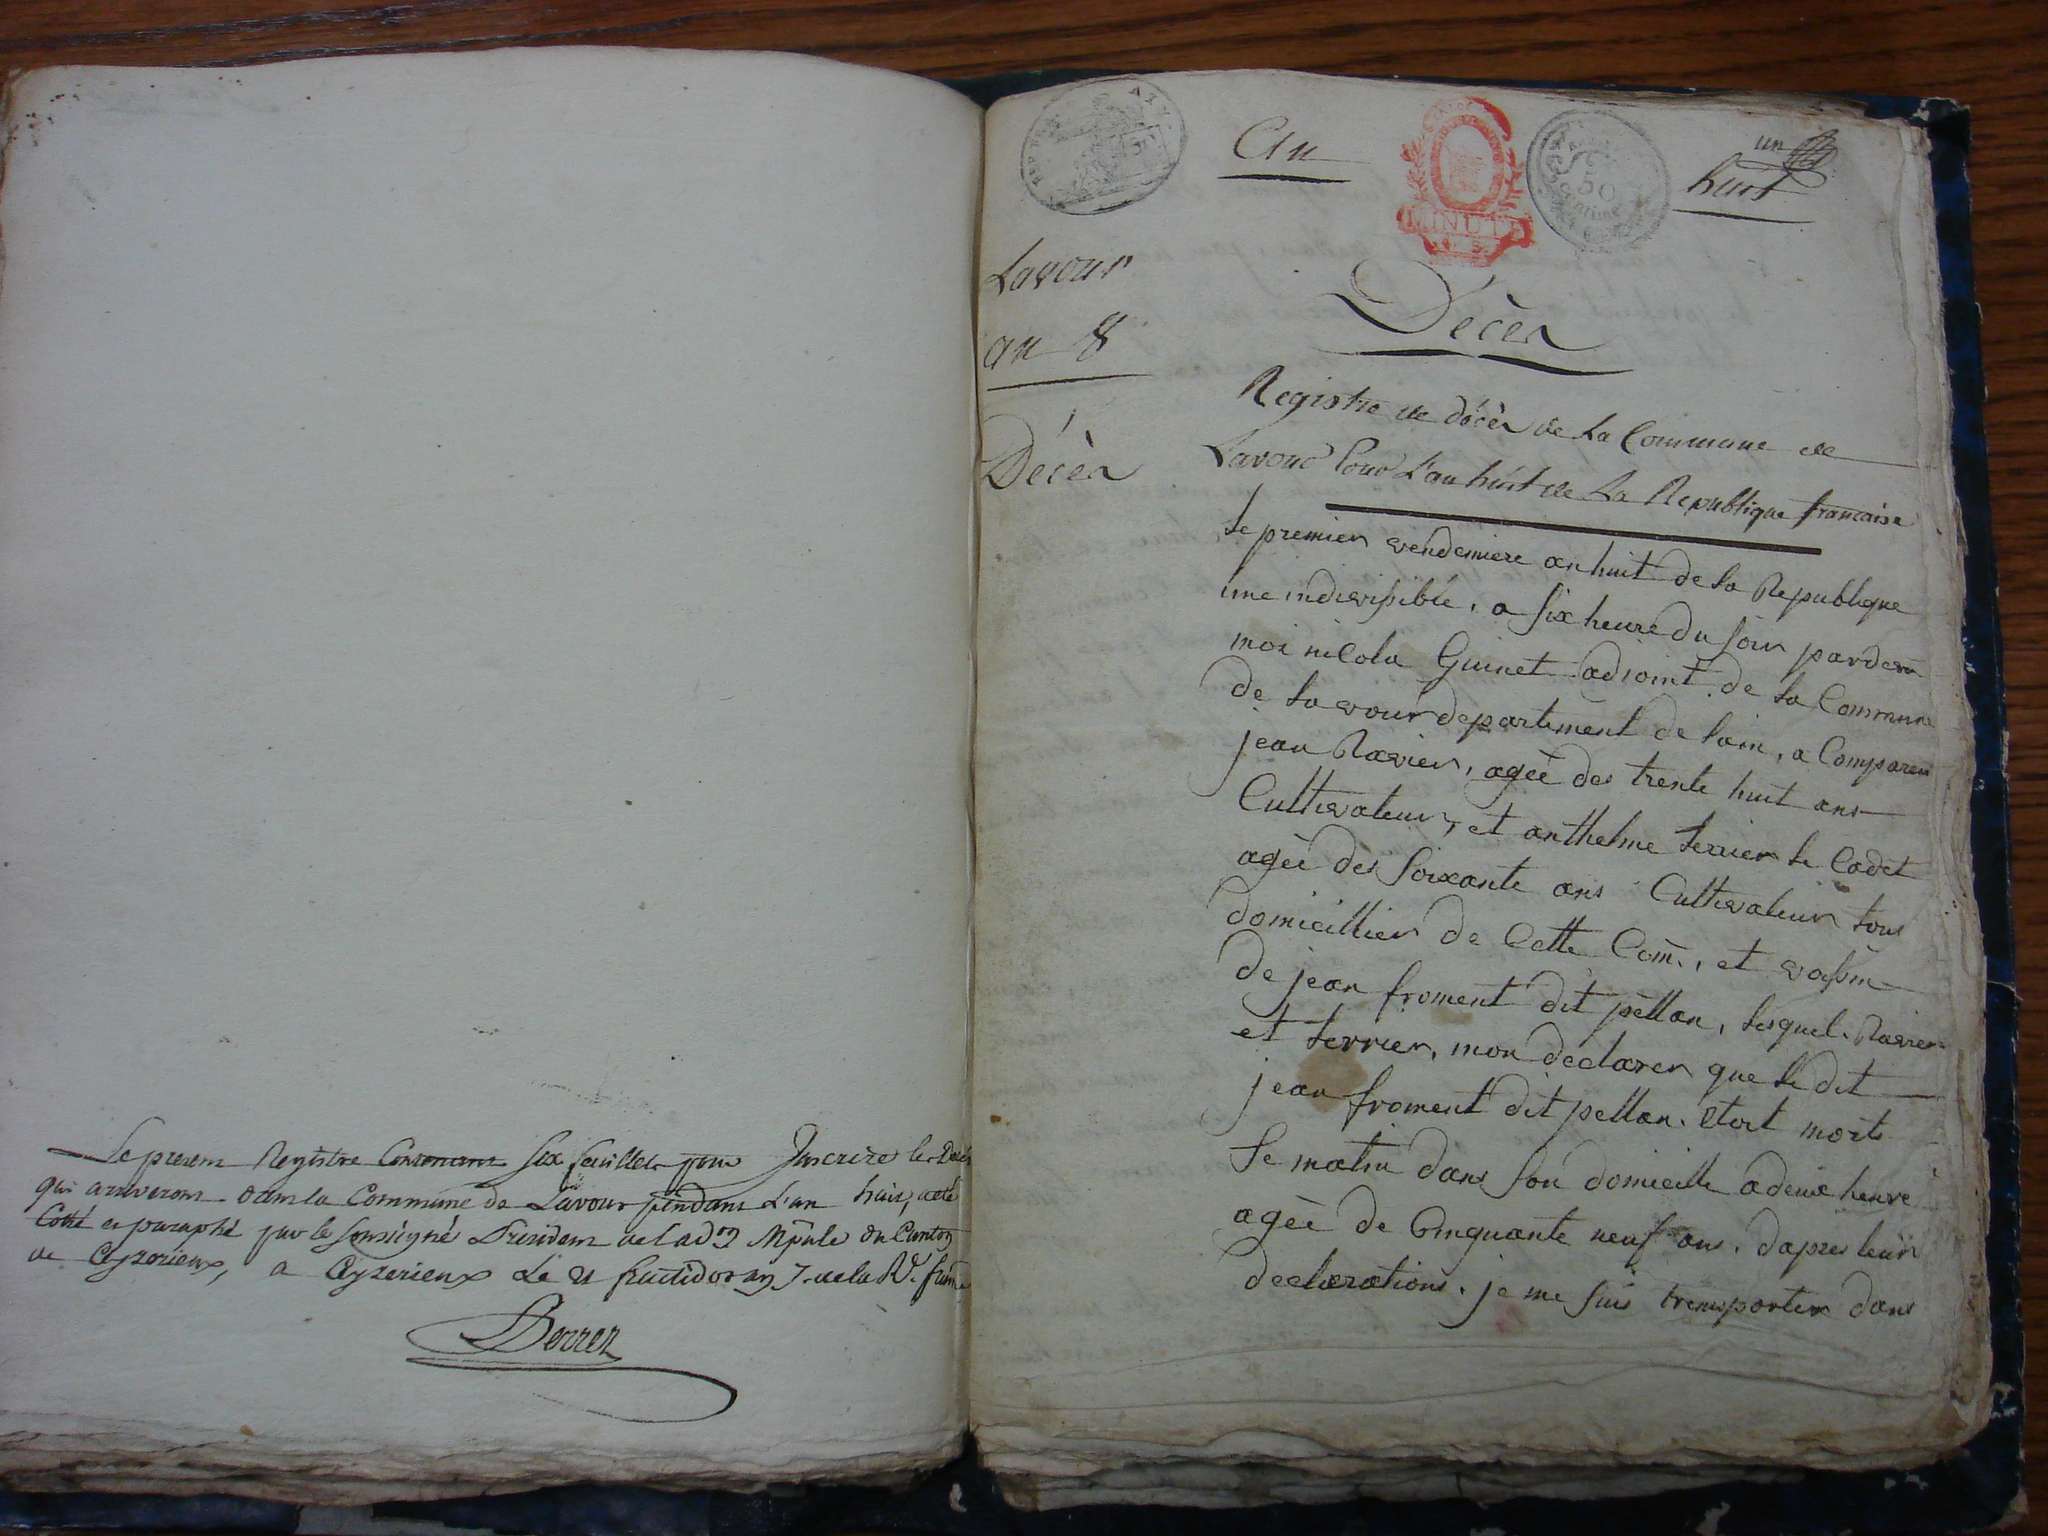 Le present Registre Contenant Six feuillets pour Inscrire les Décès
qui arriveront dans la Commune de Lavour pendant L'an huit, a eté
Cotté et paraphé par le soussigné President de l'ad.on Mpale du Canton
de Ceyzerieux, a Ceyzerieux Le 21 fructidor an 7 de la R.
An
MINUTE
50
un
huit
Lavour
an 8
Décès
Décès
Registre de décès de La Commune de
Lavour Pour L'an huit de La Republique francaise
Le premier vendemiere an huit de la Republique
une indivisible, a six heure du soir pardevn
moi nicola Guinet adioint de la Commune
de lavour departement de lain, a Compareu
jean Ravier, ageé des trente huit ans
Cultivateur, et anthelme terrier le Cadet
ageé des soixante ans Cultivateur tous
domicillier de Cette Com., et voisin
de jean froment dit pellan, lesquel Ravier
et terrier, mon declarer que le dit
jean froment dit pellan, etoit morts
Se matin dans son domicille a deux heure
ageé de Cinquante neuf ans, dapres leur
declarations, je me suis transporter dans